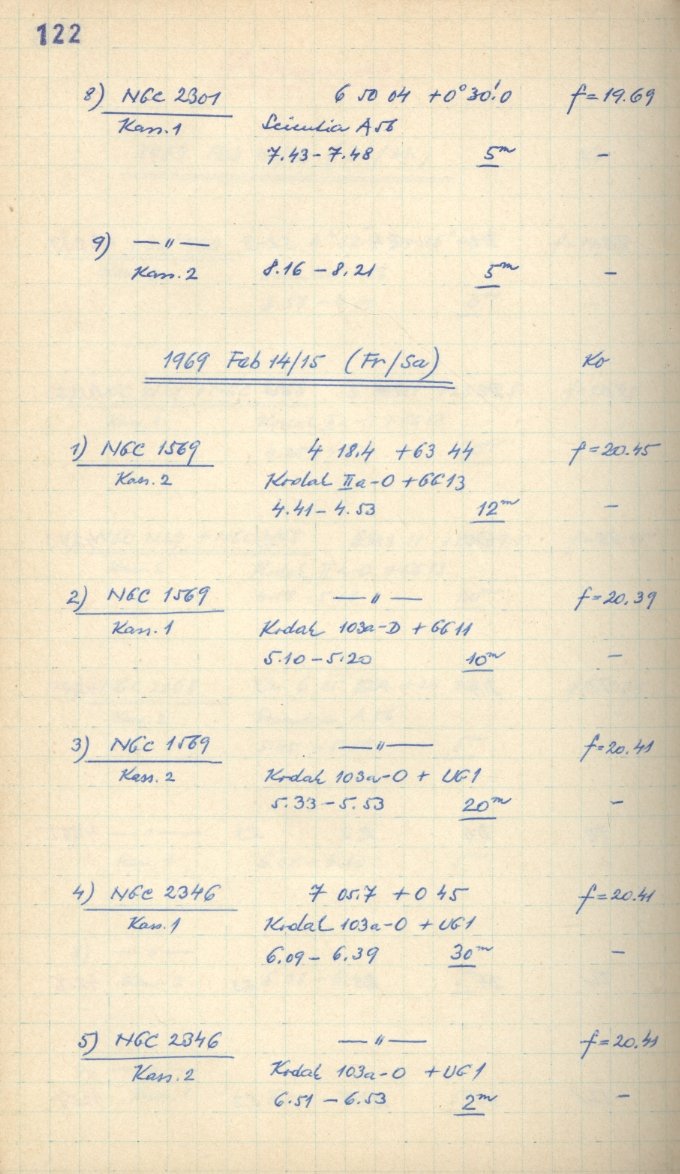 122
8) NGC 2301 6 50 04 +0° 30!0 f=19.69
Kass.1 Scientia A56
7.43-7.48 5m -
9) —"—
Kass.2 8.16-8.21 5m -
1969 Feb 14/15 (Fr/Sa) Ko
1) NGC 1569 4 18.4 +63 44 f=20.45
Kass.2 Kodak IIa-O+GG13
4.41-4.53 12m -
2) NGC 1569 —"— f=20.39
Kass.1 Kodak 103a-D+GG11
5.10-5.20 10m -
3) NGC 1569 —"— f=20.41
Kass.2 Kodak 103a-O+UG1
5.33-5.53 20m -
4) NGC 2346 7 05.7 +0 45 f=20.41
Kass.1 Kodak 103a-O+UG1
6.09-6.39 30m -
5) NGC 2346 —"— f=20.41
Kass.2 Kodak 103a-O +UG1
6.51-6.53 2m -